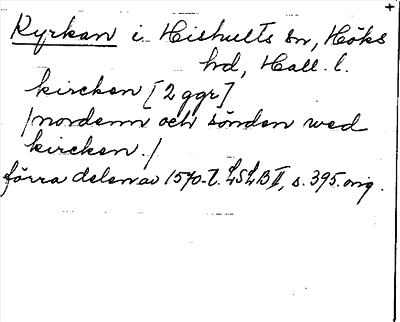 Kyrkan i Hishults sn, Höks
hd, Hall. l.
kircken [2 ggr]
/nordenn och sönden wed
kircken./
förra delen av 1570-t. LSLB II, s. 395. orig.